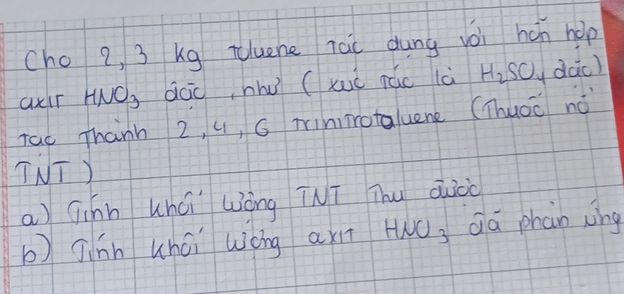 Cho 2,3 kg toluene tác dụng với hỗn hợp
axit HNO3 đặc, như (xúc tác là H2SO4 đặc)
tạo thành 2,4,6 Trinitrotaluene (Thuốc nổ
TNT)
a) Tính khối lượng TNT Thu được
b) Tính khối lượng axit HNO3 đã phản ứng